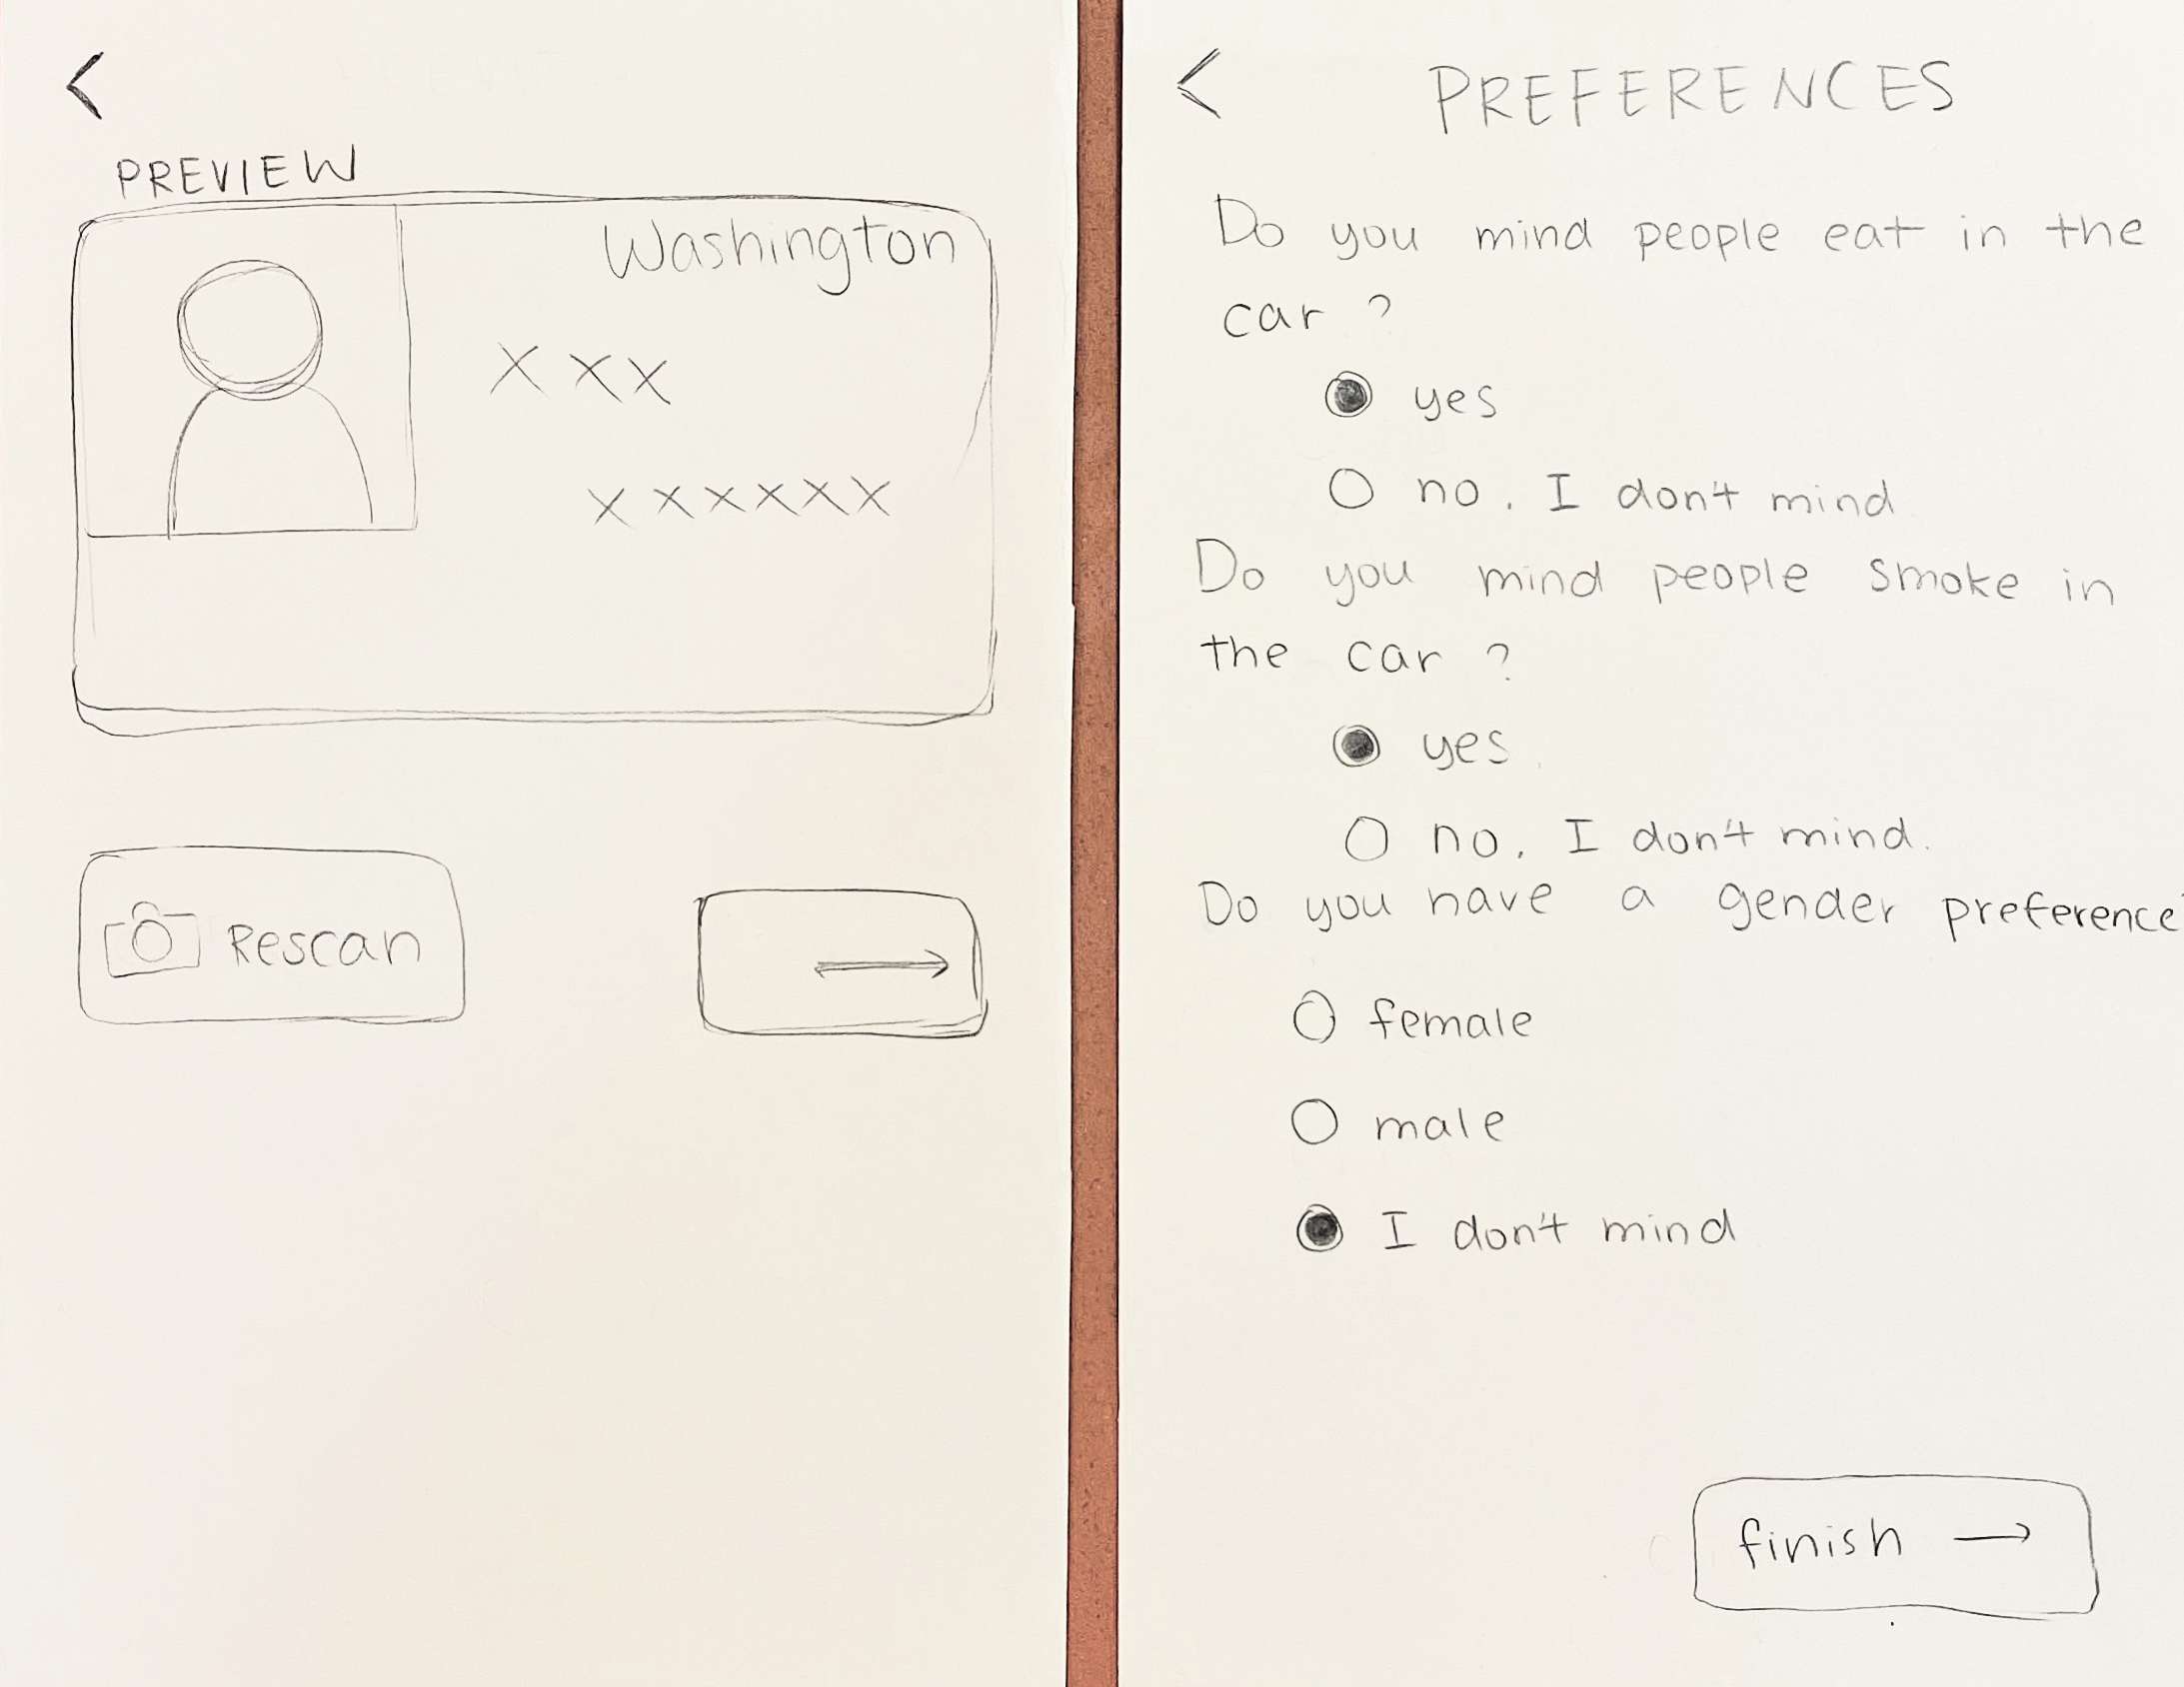 <
PREVIEW
Washington
X X X
X X X X X X
Rescan
<
PREFERENCES
Do you mind people eat in the
car ?
yes
no, I don't mind
Do you mind people smoke in
the car ?
yes
no, I don't mind.
Do you have a gender preference
female
male
I don't mind
finish